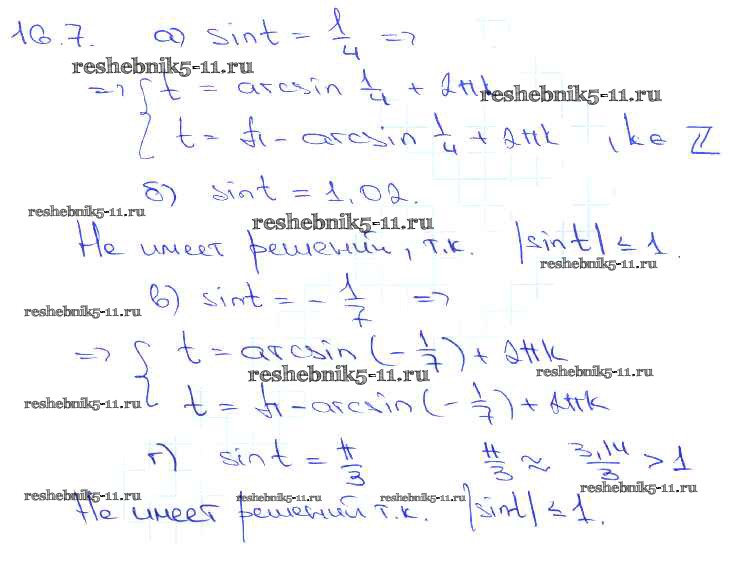 16.7. а) sint = 1/4 =>
reshebnik5-11.ru
=> { t = arcsin 1/4 + 2πk
reshebnik5-11.ru
t = π - arcsin 1/4 + 2πk , k ∈ Z
б) sint = 1,02.
reshebnik5-11.ru
reshebnik5-11.ru
Не имеет решений, т.к. |sint| ≤ 1.
reshebnik5-11.ru
в) sint = - 1/7 =>
reshebnik5-11.ru
=> { t = arcsin (-1/7) + 2πk
reshebnik5-11.ru
reshebnik5-11.ru
t = π - arcsin (-1/7) + 2πk
reshebnik5-11.ru
г) sint = π/3 π/3 ≈ 3,14/3 > 1
reshebnik5-11.ru
reshebnik5-11.ru
reshebnik5-11.ru
reshebnik5-11.ru
Не имеет решений т.к. |sint| ≤ 1.